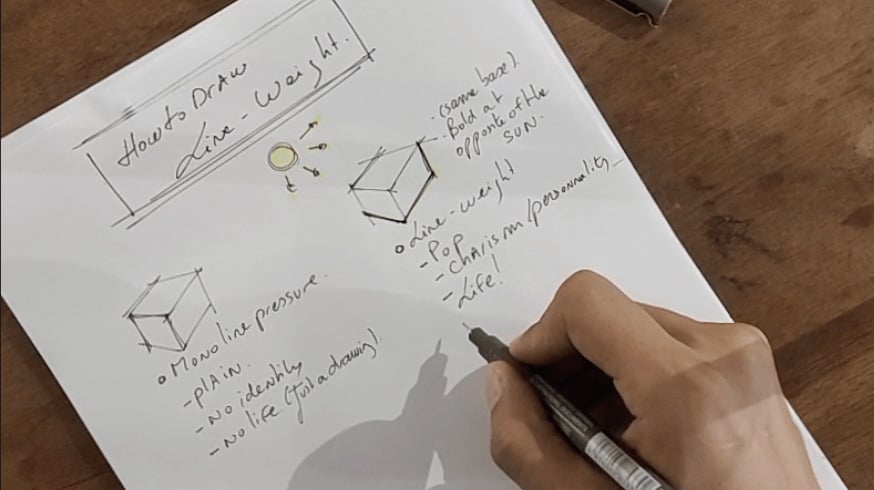 How to DrAw
Line-Weight.
. (same base).
. Bold at
opposite of the
sun.
o Line-weight
- Pop
- charism/personnality
- Life!
o Monoline pressure.
- plAin.
- No identity
- No life (Just a drawing).